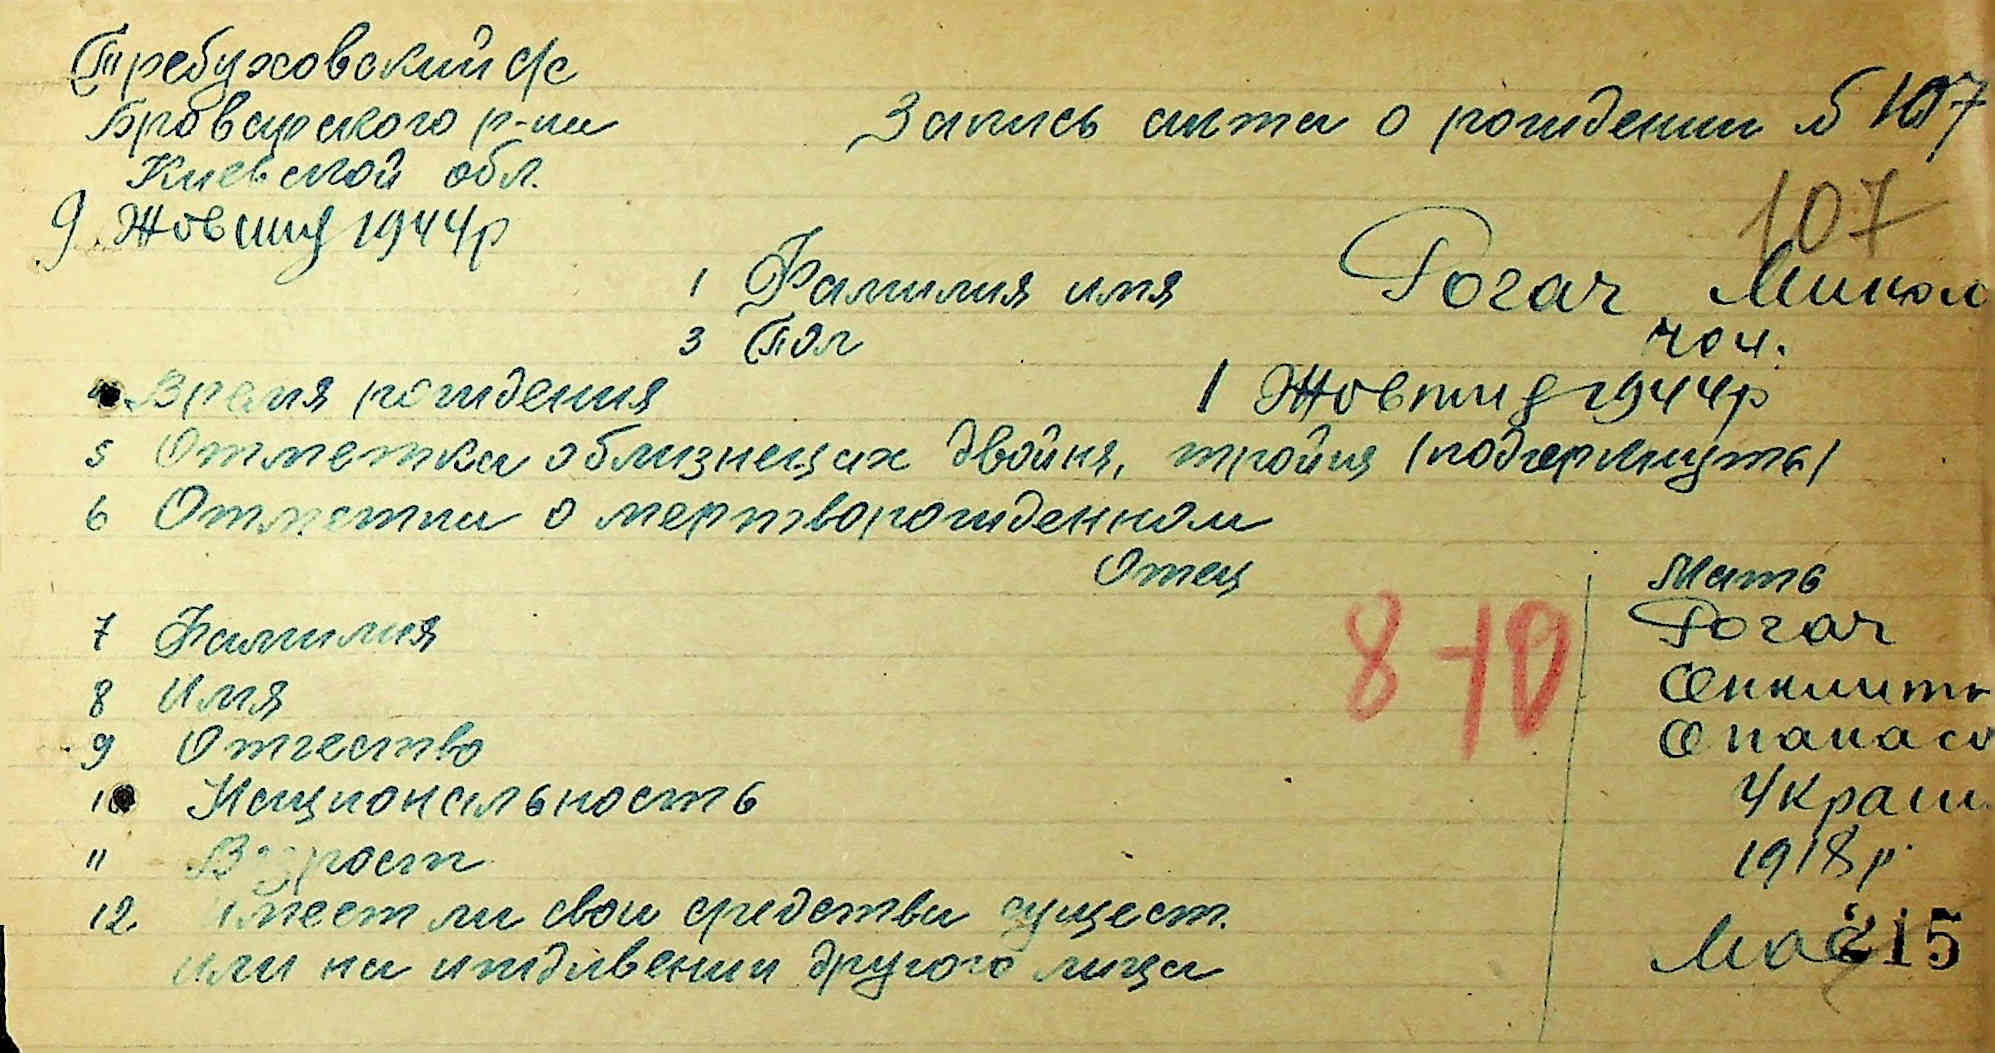 Требуховский с/с
Броварского р-на
Киевской обл.
Запись акта о рождении № 107
9 Жовтня 1944р
107
1 Фамилия имя Рогач Микол
3 Пол чоч.
4 Время рождения 1 Жовтня 1944р
5 Отметка о близнецах двойня, тройня (подчеркнуть)
6 Отметки о мертворожденном
Отец Мать
7 Фамилия Рогач
8 Имя
8-10
9 Отчество Опанасо
10 Национальность Украин
11 Возраст 1918р.
12 Имеет ли свои средства сущест.
или на иждивении другого лица Має
215